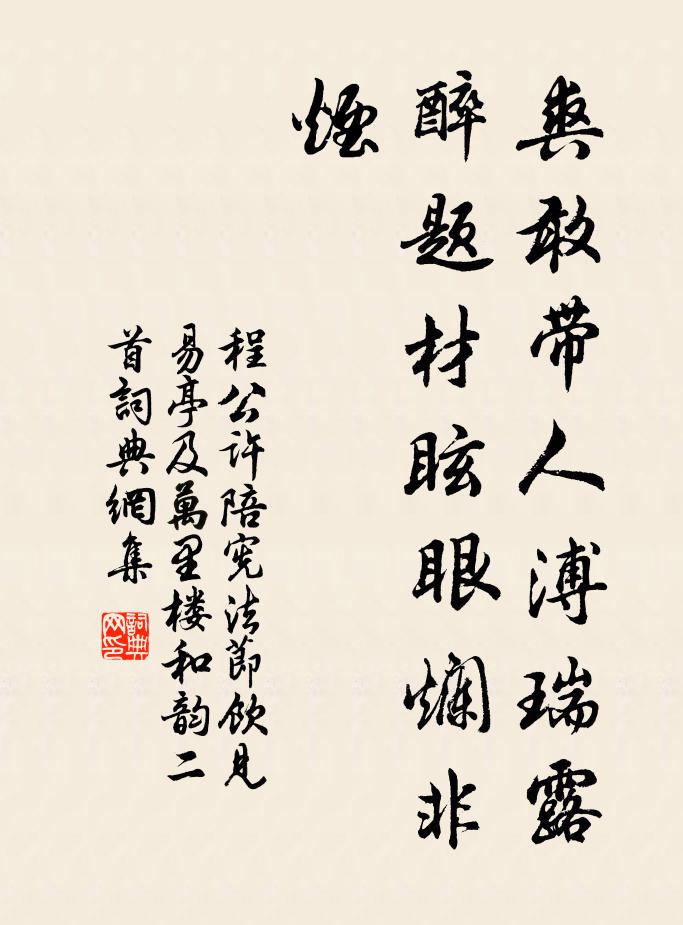 爽敢带人溥瑞露
醉题材眩眼爛非
煙
程公许陪宪法節飲見
易亭及萬里楼和韵二
首詞典網集
詞典网印